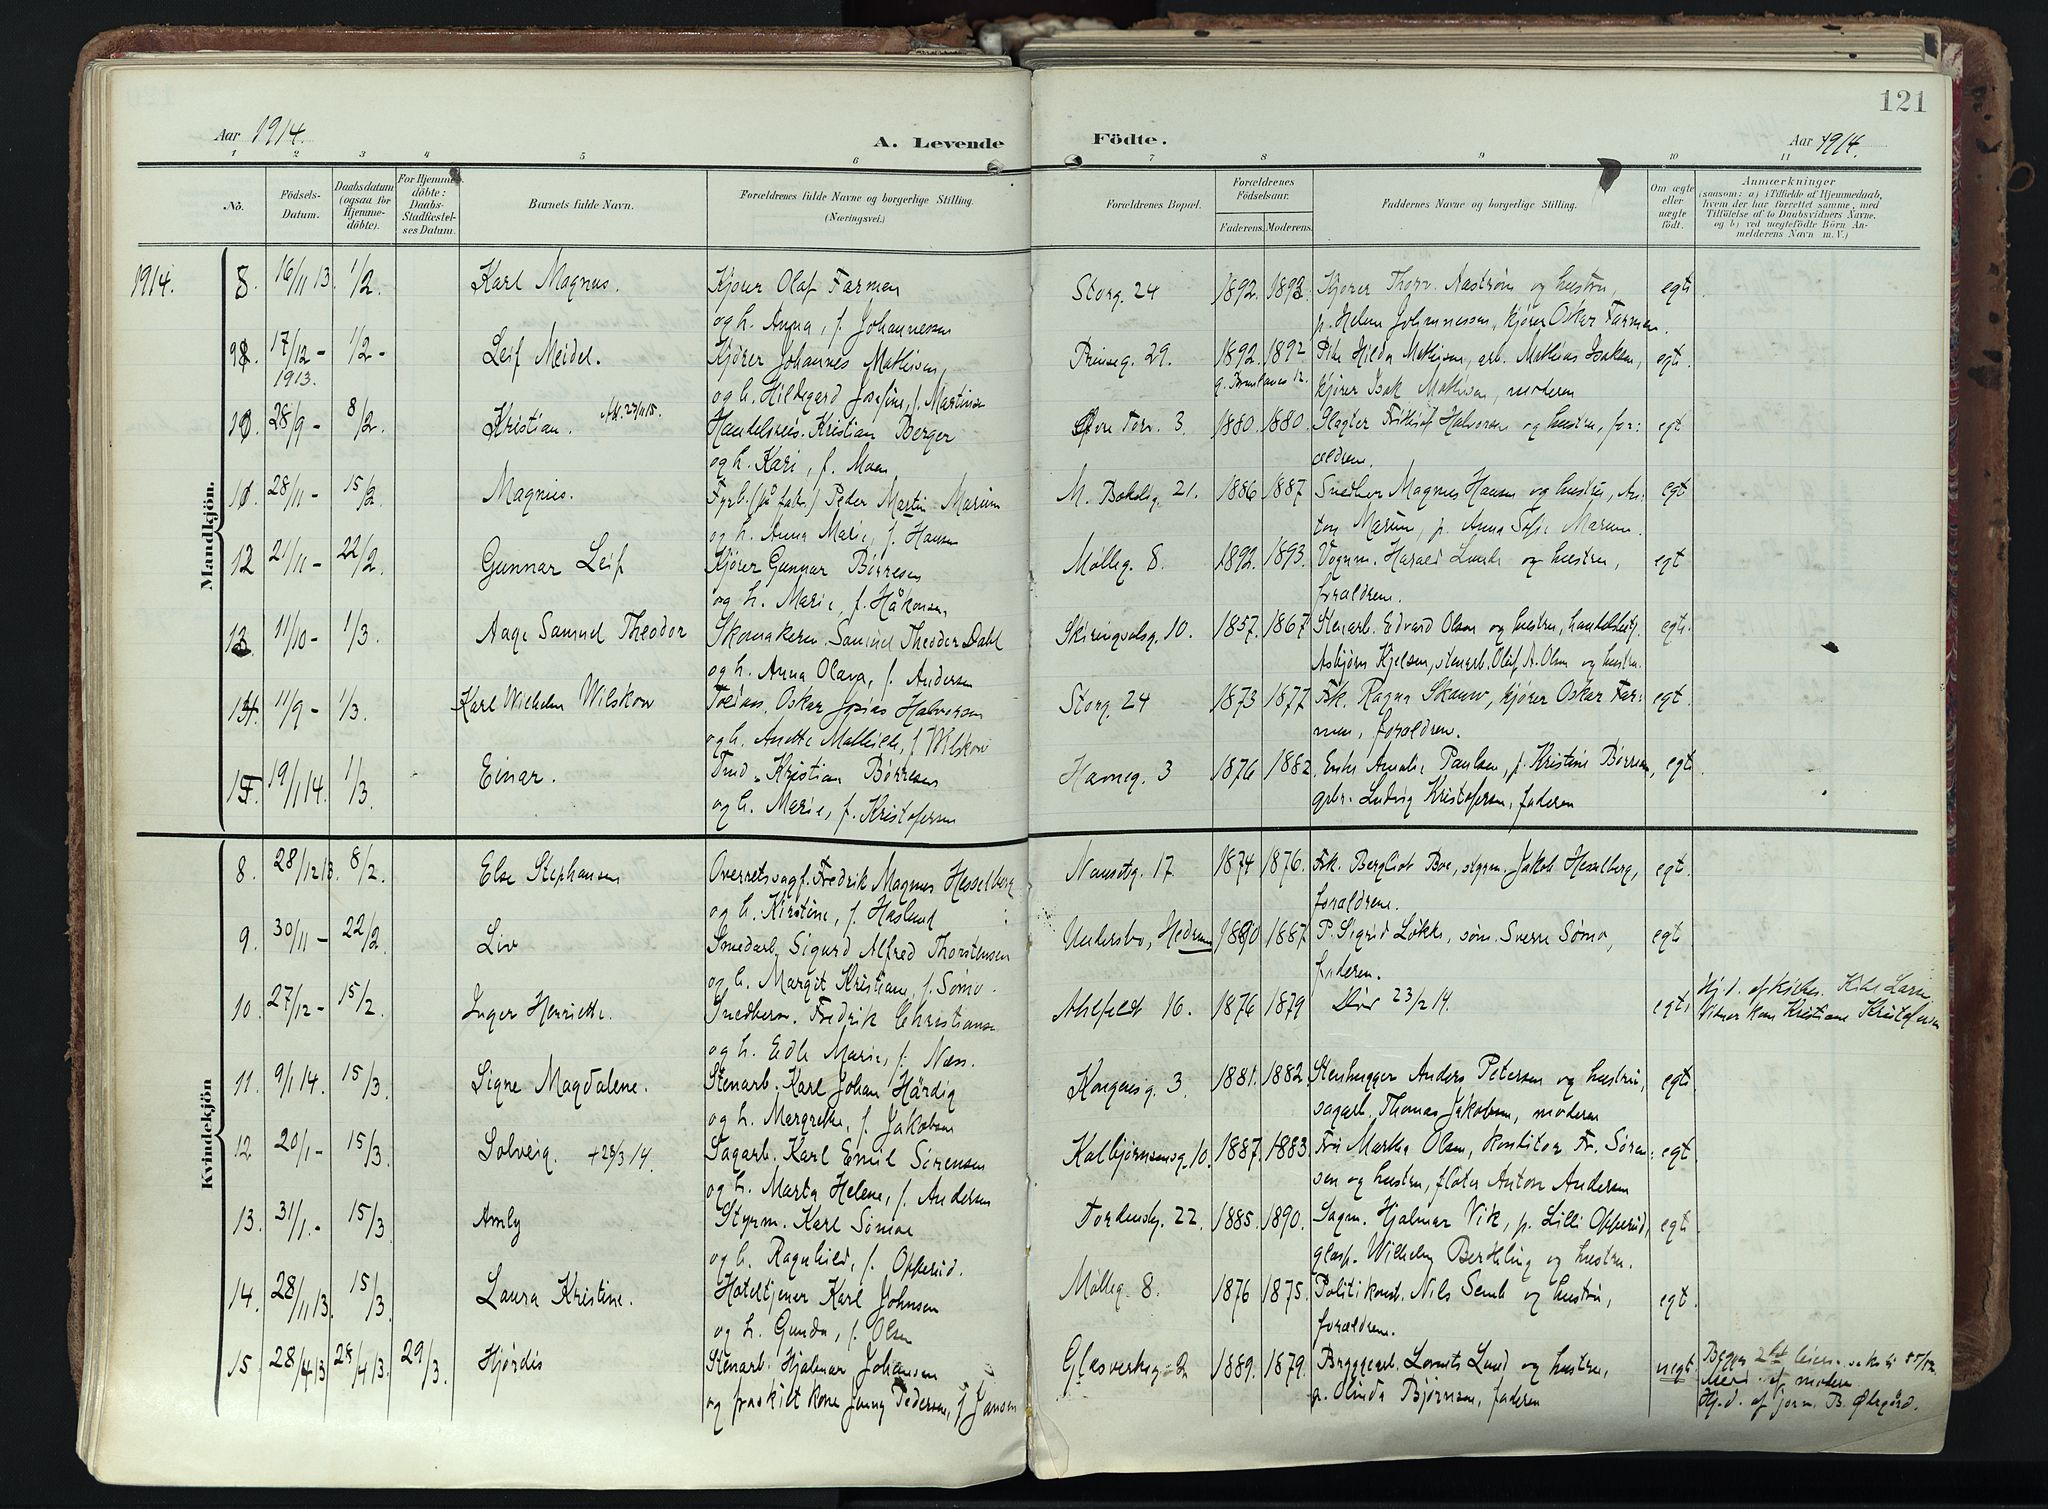 Aar 1914.
A. Levende
Födte.
Aar 1914.
121
1 2 3 4 5 6 7 8 9 10 11
No.
Födsels-Datum.
Daabsdatum (ogsaa for Hjemme-döbte).
For Hjemme-döbte: Daabs-Stadfæstel-ses Datum.
Barnets fulde Navn.
Forældrenes fulde Navne og borgerlige Stilling. (Næringsvei.)
Forældrenes Bopæl.
Forældrenes Födselsaar.
Faderens. Moderens.
Faddernes Navne og borgerlige Stilling.
Om ægte eller uægte födt.
Anmærkninger
(saasom: a) i Tilfælde af Hjemmedaab,
hvem der har forrettet samme, med
Tilföielse af to Daabsvidners Navne,
og b) ved uegtefödte Börn An-
melderens Navn m. V.)
Mandkjön.
1914. 8. 16/11 13. 1/2. Karl Magnus. Kjører Olaf Farmen Storg. 24 1892. 1892. Kjører Thorv. Aaström og hustru, egte
og h. Anna, f. Johannessen p. Helene Johannessen, kjører Oskar Farmen.
9. 17/12 - 1913. 1/2 - Leif Meidel. Kjører Johannes Mathisen, Prinseg. 29. 1892. 1892 Pike Hilda Mathisen, arb. Mathias Isaksen, egt.
og h. Hildegard Josefine, f. Martinsen kjører Isak Mathisen, moderen
10. 28/9 - 8/2. Kristian. Handelsreis. Kristian Berger Øvre Torv. 3. 1880. 1880. Slagter Frithjof Halvorsen og hustru, for- egt
og h. Kari, f. Moen ældrene.
11. 28/11 - 15/2. Magnus. Fyrb. (på fabr.) Peder Martin Marum M. Bakkeg. 21. 1886 1887 Snedker Magnus Hansen og hustru, An- egt
og h. Anna Marie, f. Hansen ton Marum, p. Anna Sofie Marum.
12 21/11 - 22/2. Gunnar Leif Kjører Gunnar Børresen Mølleg. 8. 1892. 1893. Vognm. Harald Lunde og hustru, egt
og h. Marie, f. Håkonsen forældrene.
13. 11/10 - 1/3. Aage Samuel Theodor Skomakerm. Samuel Theodor Dahl Skiringsalsg. 10. 1857. 1867 Stenarb. Edvard Olsen og hustru, egt.
og h. Anna Olava, f. Andersen Asbjørn Kjelsen, stenarb. Olaf A. Olsen og hustru.
14. 11/9 - 1/3. Karl Wilhelm Wilskow Oskar Josias Halvorsen Storg. 24 1873 1877 Frk. Ragna Skauw, kjører Oskar Far- egt
og h. Anette Mathilde, f. Wilskow men, forældrene.
15. 19/1 14. 1/3. Einar. Kristian Børresen Havneg. 3 1876 1882. Enke Amalie Paulsen, p. Kristine Børresen, egt
og h. Marie, f. Kristofersen Ludvig Kristofersen, faderen
Kvindekjön
8. 28/12 13. 8/2. Else Stephansen Overretssagf. Fredrik Magnus Hesselberg Nansetg. 17 1874 1876. Frk. Bergliot Boe, styrm. Jakob Hesselberg, egt.
og h. Kirstine, f. Haslund forældrene.
9. 30/11 - 22/2 Liv Smedarb. Sigurd Alfred Thorstensen Undersbo, Hedrum 1890 1887 P. Sigrid Løkke, søm. Sverre Sømo, egt
og h. Margit Kristiane, f. Sømo. faderen.
10. 27/12 - 15/2. Inger Henriette. Snedkerm. Fredrik Christiansen Ahlefeldt 16. 1876 1879 Død 23/2 14. egt Hj.d. af
og h. Edle Marie, f. Næss. Vidner Kristiane Kristofersen
11. 9/1 14. 15/3. Signe Magdalene. Stenarb. Karl Johan Härdig Kongensg. 3. 1881. 1882. Stenhugger Anders Petersen og hustru, egt
og h. Margrethe, f. Jakobsen sagarb. Thomas Jakobsen, moderen
12 20/1 - 15/3. Solveig. +28/3 14. Sagarb. Karl Emil Sørensen Kolbjørnsensg. 10. 1887. 1883. Fru Martha Olsen, konditor Fr. Søren- egt.
og h. Marta Helene, f. Andersen sen og hustru, fløter Anton Andersen
13. 31/1. - 15/3 Amly Styrm. Karl Sømoe Tordenskj. 22. 1885. 1890. Sagm. Hjalmar Vik, p. Lilli Opperud, egt
og h. Ragnhild, f. Opperud. glasp. Wilhelm Berthling og hustru.
14. 28/11 13. 15/3. Laura Kristine. Hoteltjener Karl Johnsen Mølleg. 8. 1876 1875. Politikonst. Nils Semb og hustru, egt.
og h. Gunda, f. Olsen forældrene.
15 28/4 13 28/4 13. 29/3. Hjørdis Stenarb. Hjalmar Johansen Glasverksg. 2 1889. 1879. Bryggearb. Lorents Lund og hustru, uegt Begge 2det leier.
og fraskilt kone Jenny Pedersen, f. Jansen p. Olinda Bjørnsen, faderen af moderen
Hj.d. af jorm. B. Ødegård.